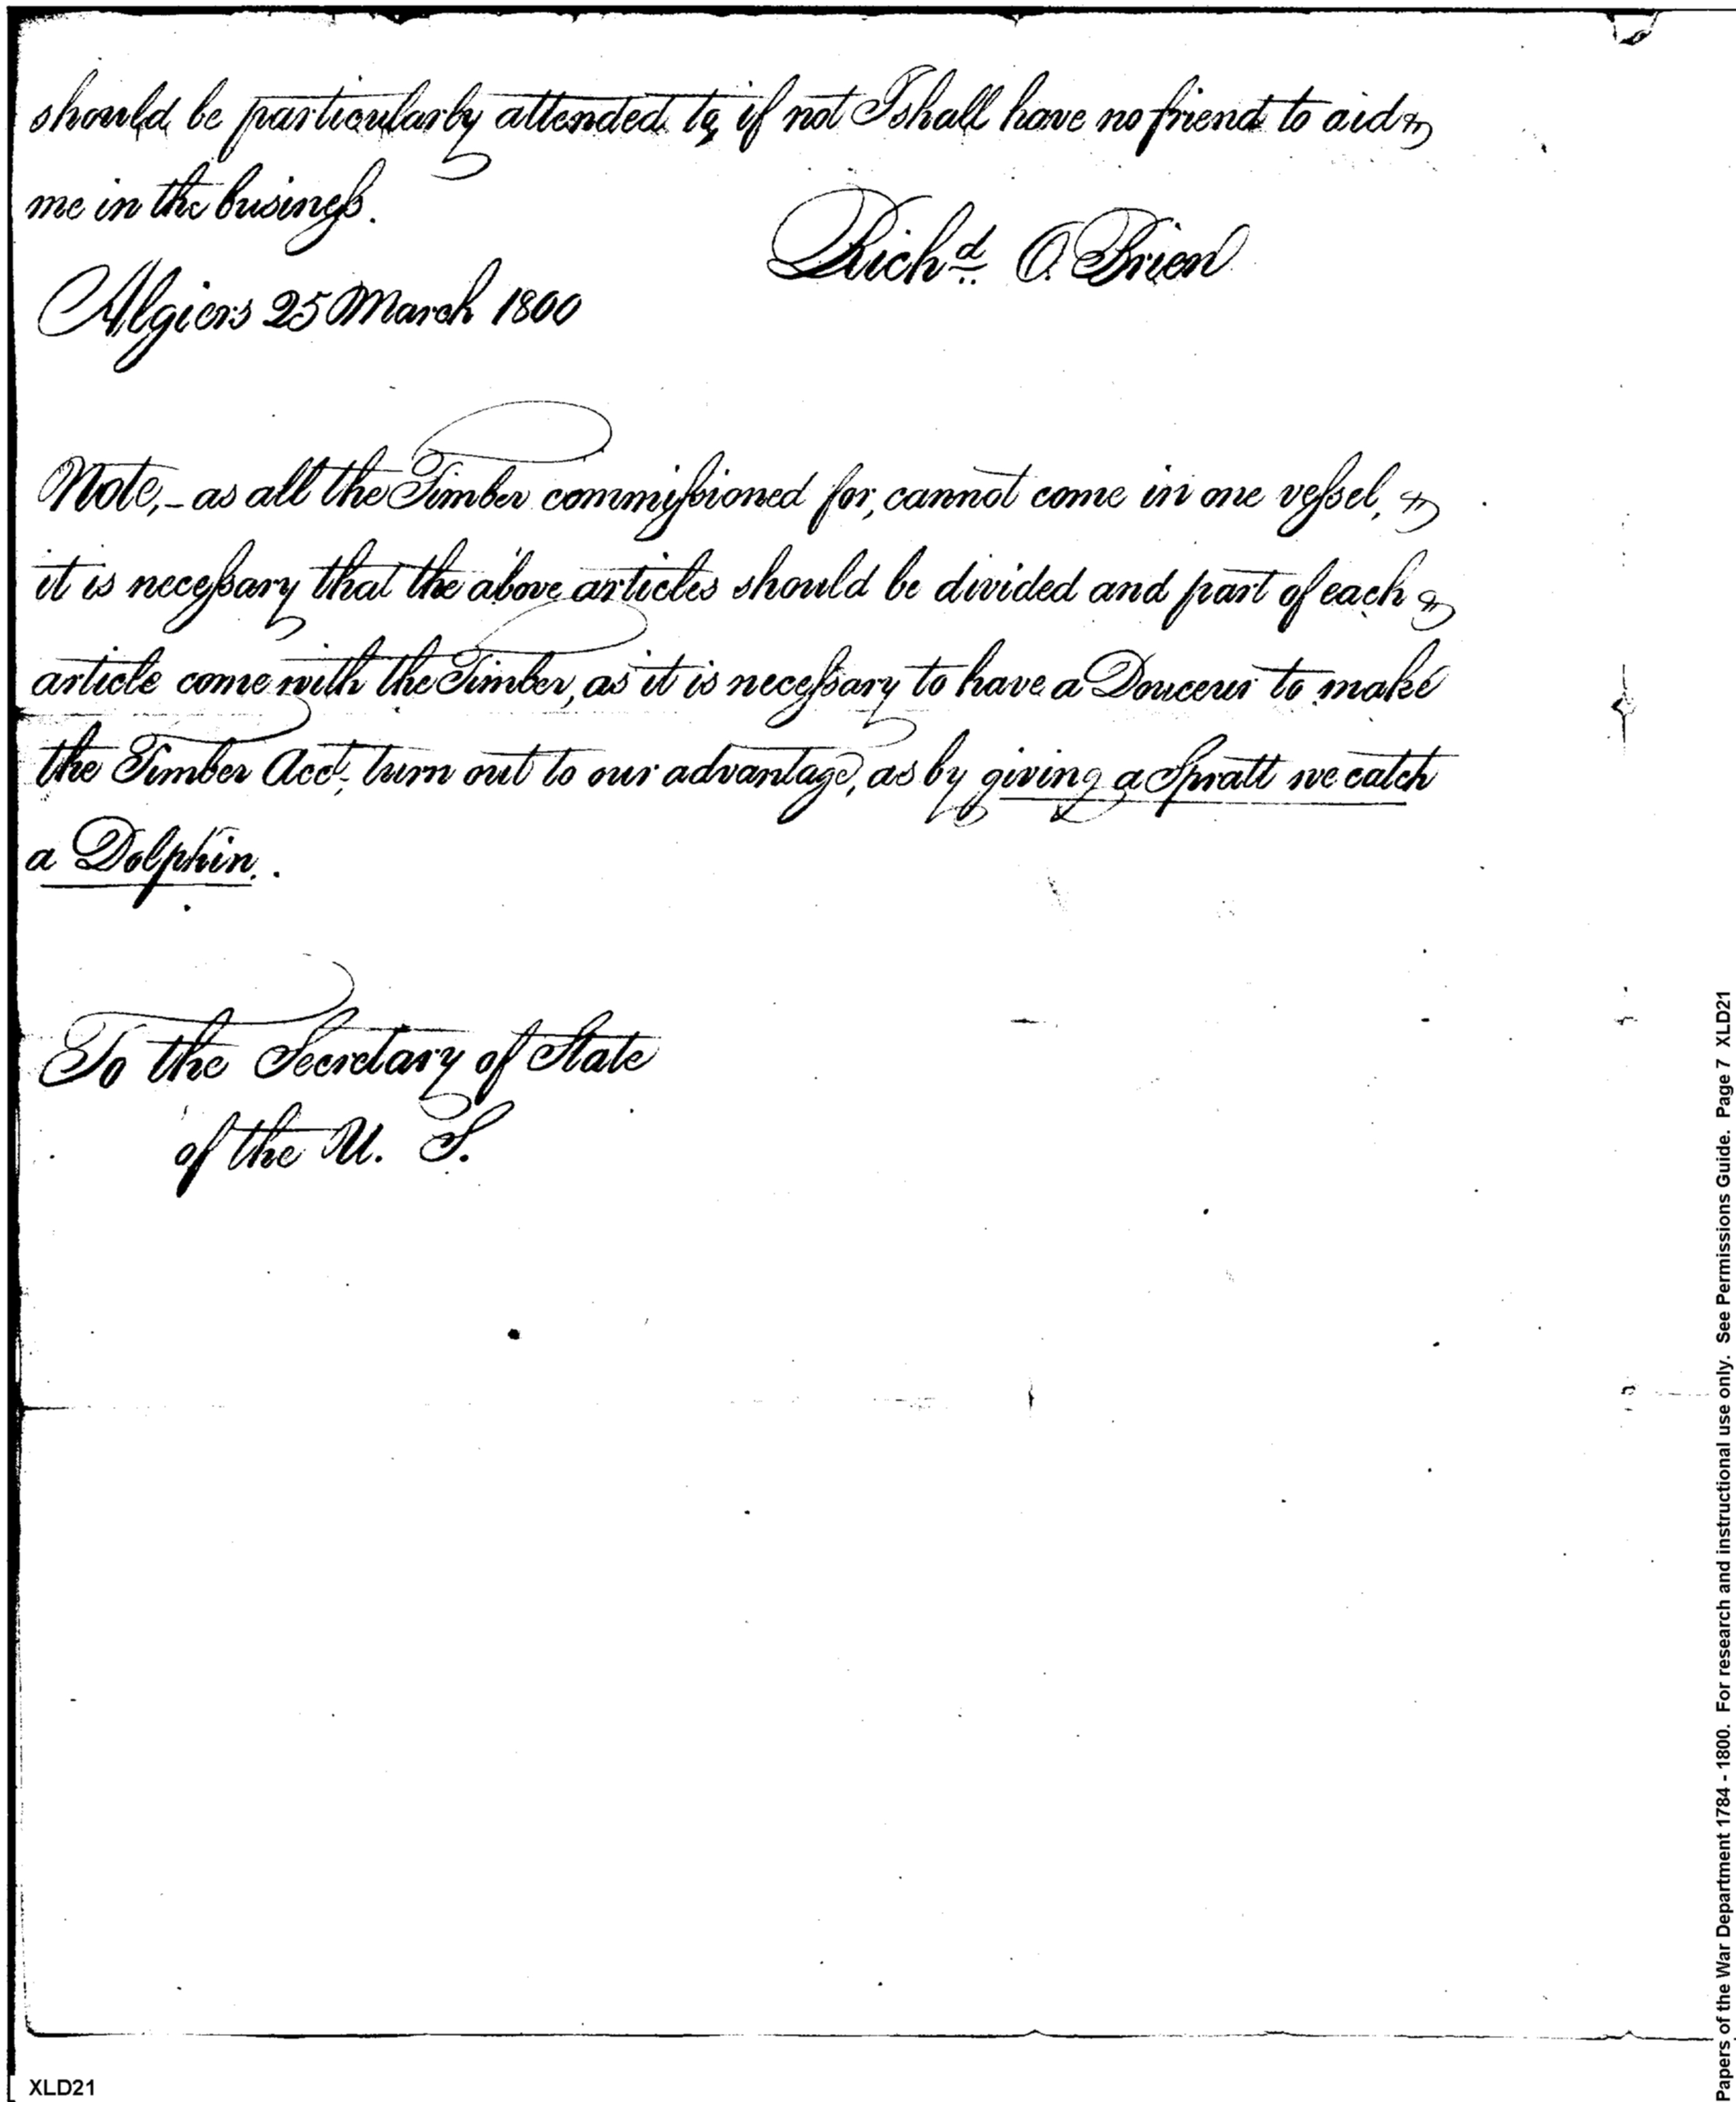 should be particularly attended to, if not I shall have no friend to aid
me in the business.
Richd. O Brien
Algiers 25 March 1800
Note, - as all the Timber commissioned for, cannot come in one vessel,
it is necessary that the above articles should be divided and part of each
article come with the Timber, as it is necessary to have a Douceur to make
the Timber Acct. turn out to our advantage, as by giving a Spratt we catch
a Dolphin.
To the Secretary of State
of the U. S.
XLD21
Papers of the War Department 1784 - 1800. For research and instructional use only. See Permissions Guide. Page 7 XLD21